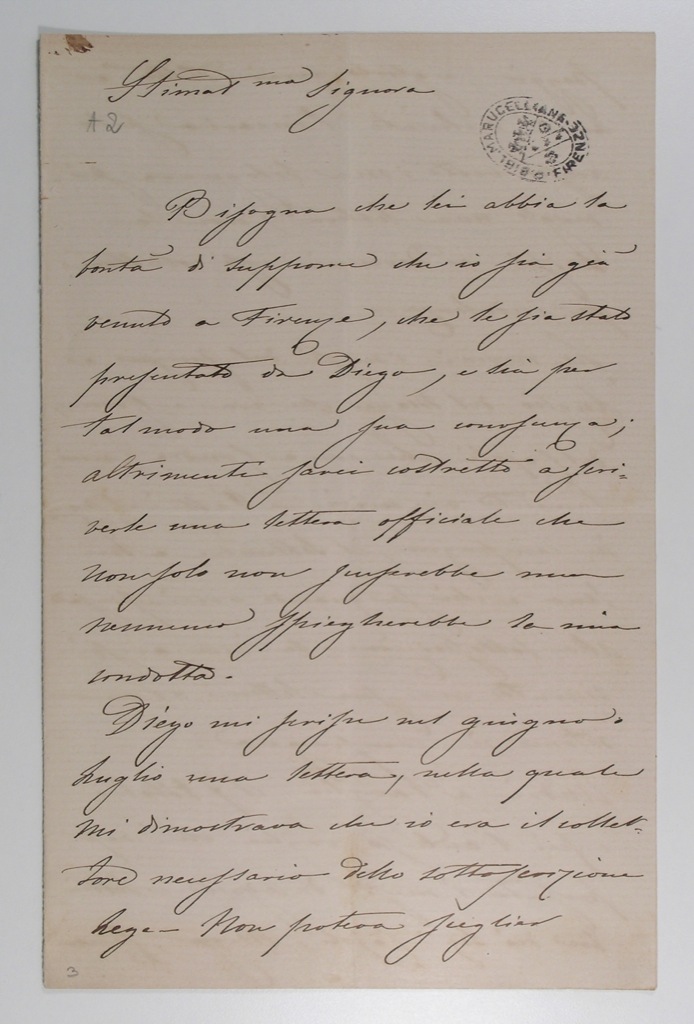 Stimat ma Signora
A 2
MARUCELLIANA · DI FIRENZE · BIBL.
Bisogna che lei abbia la
bontà di supporre che io sia già
venuto a Firenze, che le sia stato
presentato da Diego, e sia per
tal modo una sua conoscenza;
altrimenti sarei costretto a scri-
verle una lettera officiale che
non solo non scuserebbe ma
nemmeno spiegherebbe la mia
condotta.
Diego mi scrisse nel giugno o
luglio una lettera, nella quale
mi dimostrava che io era il collet-
tore necessario della sottoscrizione
Non poteva sceglier
3